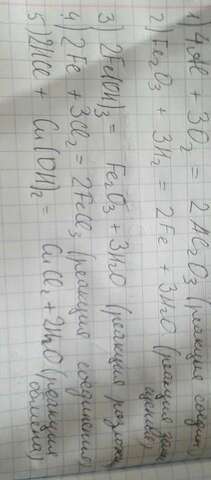 1) 4Al + 3O₂ = 2Al₂O₃ (реакция соедин.)
2) Fe₂O₃ + 3H₂ = 2Fe + 3H₂O (реакция заме
щение)
3) 2Fe(OH)₃ = Fe₂O₃ + 3H₂O (реакция разлож.)
4) 2Fe + 3Cl₂ = 2FeCl₃ (реакция соединения)
5) 2HCl + Cu(OH)₂ = CuCl₂ + 2H₂O (реакция
обмена)